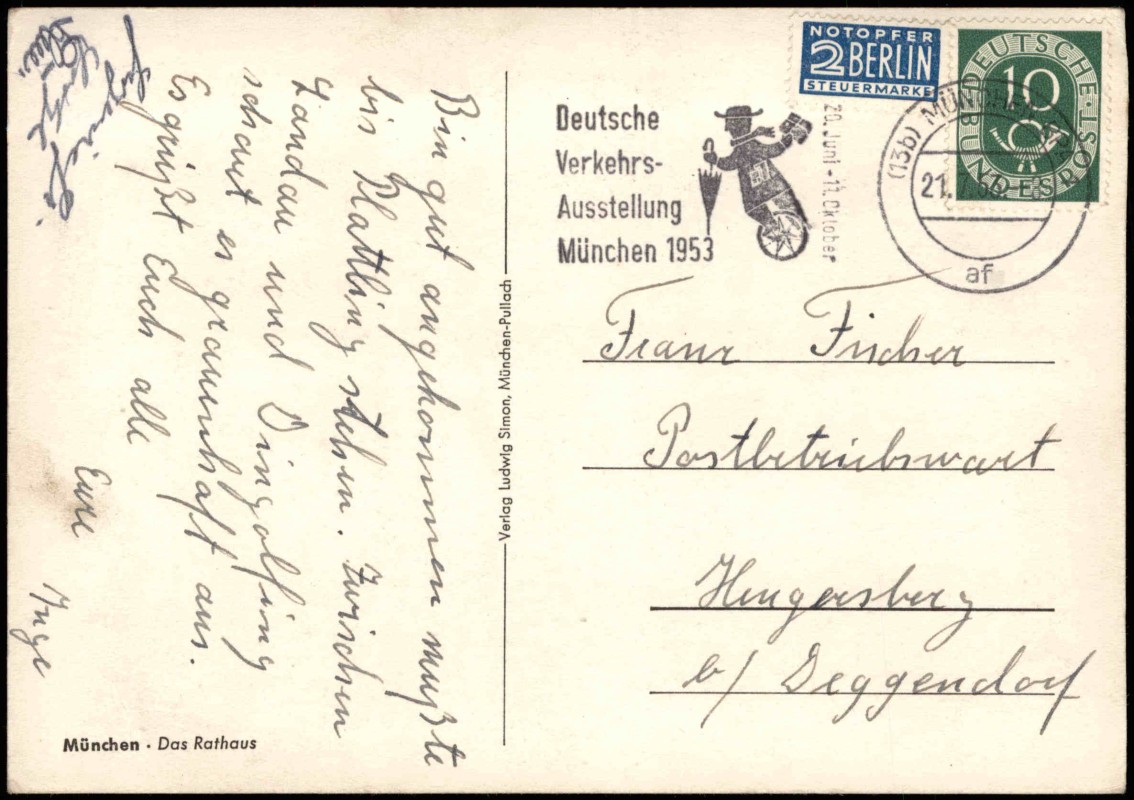 Bin gut angekommen mußte
bis Plattling stehen. Zwischen
Landau und Dingolfing
schaut es grauenhaft aus.
Es grüßt Euch alle
Eure
Inge
München · Das Rathaus
Verlag Ludwig Simon, München-Pullach
Deutsche
Verkehrs-
Ausstellung
München 1953
20. Juni - 11. Oktober
NOTOPFER
2 BERLIN
STEUERMARKE
DEUTSCHE BUNDESPOST
10
(13b) MÜNCHEN
21.
af
Franz Fischer
Postbetriebswart
Hengersberg
b/ Deggendorf